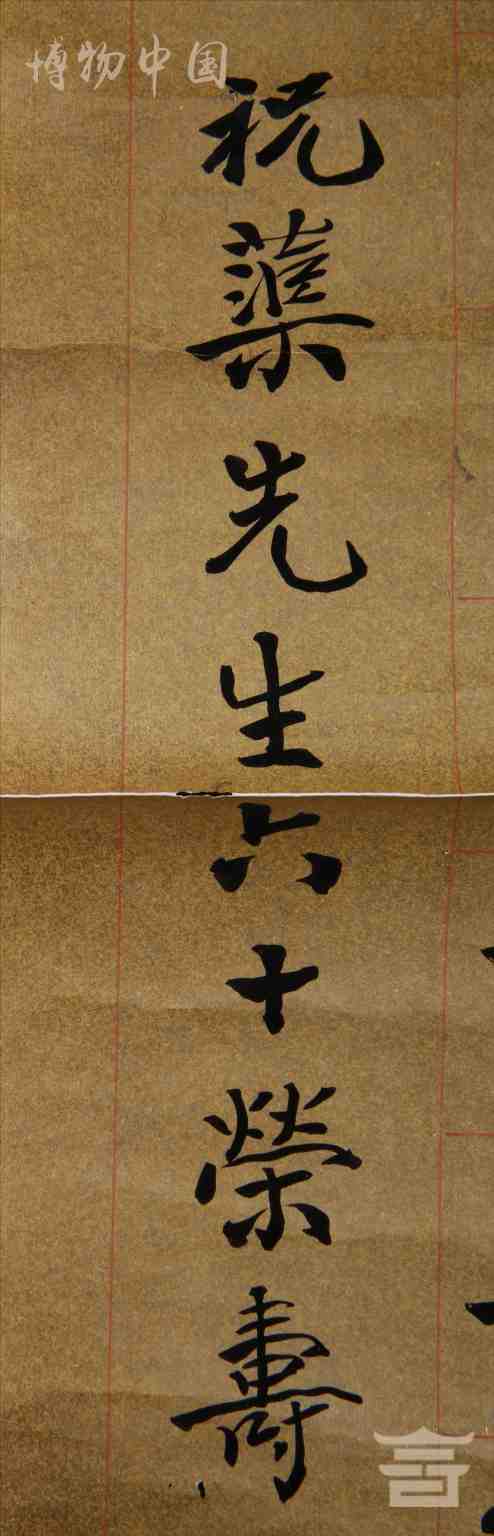 博物中国
祝蕖先生六十榮壽